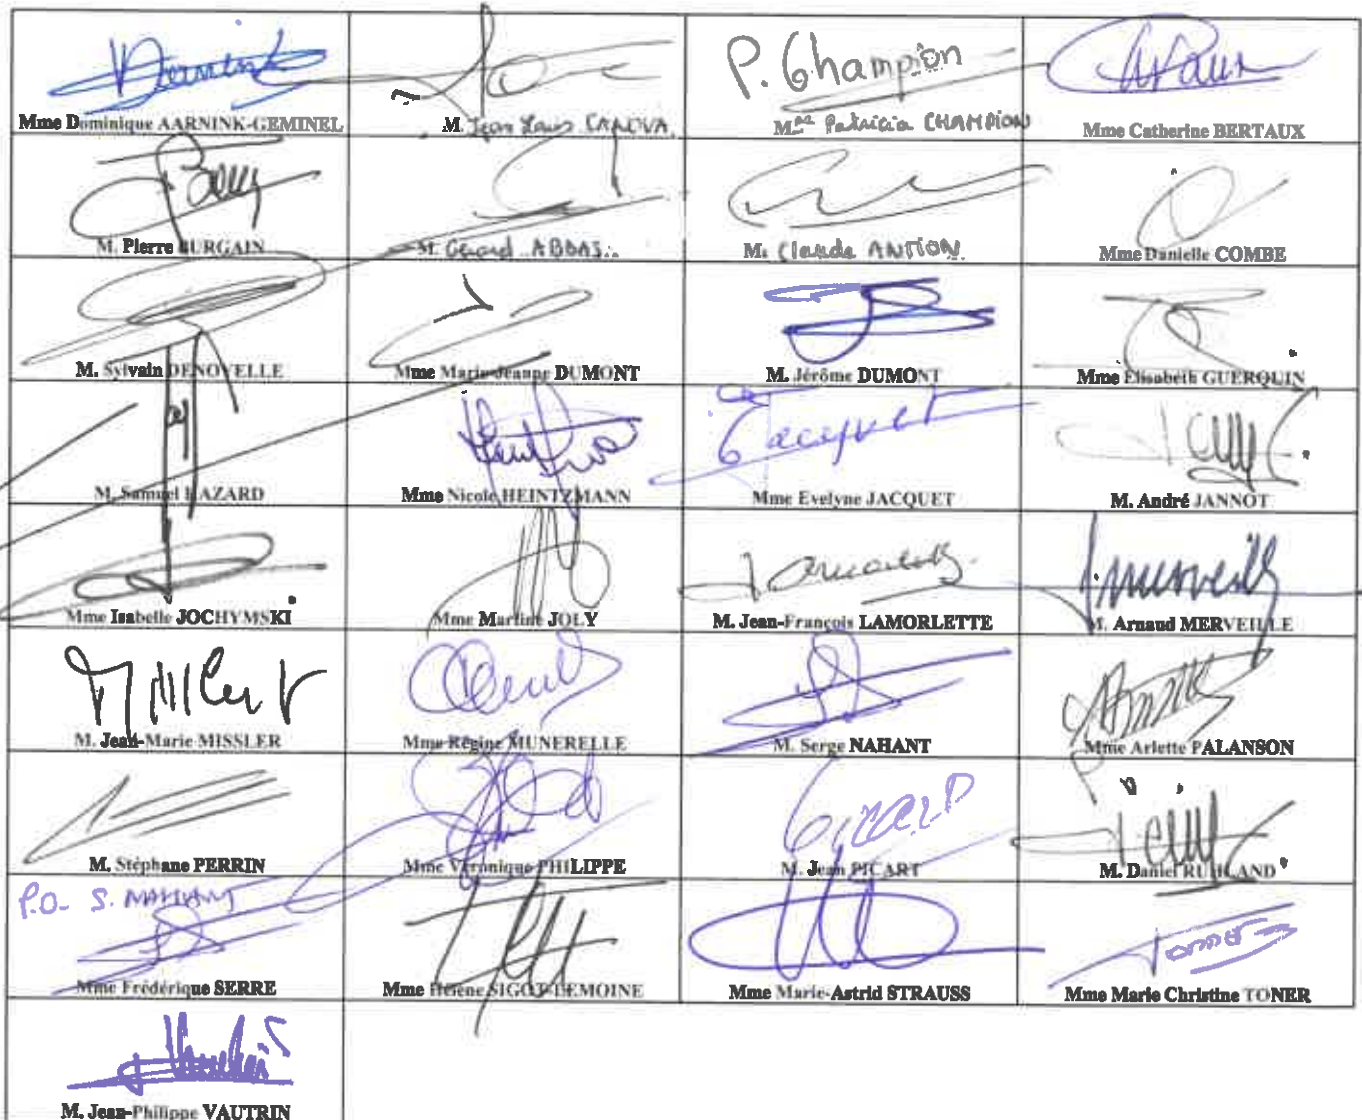 P. Champion
Mme Dominique AARNINK-GEMINEL
M. Jean Louis CANOVA.
Mme Patricia CHAMPION
Mme Catherine BERTAUX
M. Pierre BURGAIN
M. Gérard ABBAS
M. Claude ANTION
Mme Danielle COMBE
M. Sylvain DENOYELLE
Mme Marie-Jeanne DUMONT
M. Jérôme DUMONT
Mme Elisabeth GUERQUIN
Jacquet
M. Samuel HAZARD
Mme Nicole HEINTZMANN
Mme Evelyne JACQUET
M. André JANNOT
Mme Isabelle JOCHYMSKI
Mme Martine JOLY
M. Jean-François LAMORLETTE
M. Arnaud MERVEILLE
M. Jean-Marie MISSLER
Mme Régine MUNERELLE
M. Serge NAHANT
Mme Arlette PALANSON
M. Stéphane PERRIN
Mme Véronique PHILIPPE
M. Jean PICART
M. Daniel RUHLAND
P.O. S. NAHANT
Mme Frédérique SERRE
Mme Hélène SIGOT-LEMOINE
Mme Marie-Astrid STRAUSS
Mme Marie Christine TONER
M. Jean-Philippe VAUTRIN